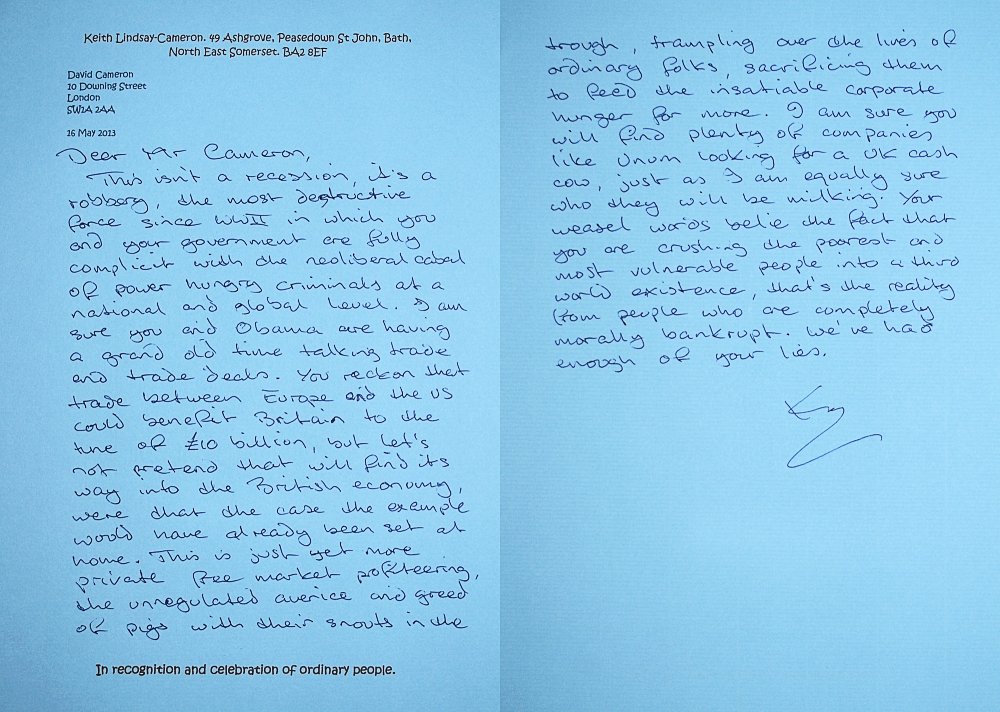 Keith Lindsay-Cameron. 49 Ashgrove, Peasedown St John, Bath,
North East Somerset. BA2 8EF
David Cameron
10 Downing Street
London
SW1A 2AA
16 May 2013
Dear Mr Cameron,
This isn't a recession, it's a
robbery, the most destructive
force since WWII in which you
and your government are fully
complicit with the neoliberal cabal
of power hungry criminals at a
national and global level. I am
sure you and Obama are having
a grand old time talking trade
and trade deals. You reckon that
trade between Europe and the US
could benefit Britain to the
tune of £10 billion, but let's
not pretend that will find its
way into the British economy,
were that the case the example
would have already been set at
home. This is just yet more
private free market profiteering,
the unregulated averice and greed
of pigs with their snouts in the
In recognition and celebration of ordinary people.
trough, trampling over the lives of
ordinary folks, sacrificing them
to feed the insatiable corporate
hunger for more. I am sure you
will find plenty of companies
like Unum looking for a UK cash
cow, just as I am equally sure
who they will be milking. Your
weasel words belie the fact that
you are crushing the poorest and
most vulnerable people into a third
world existence, that's the reality
from people who are completely
morally bankrupt. We've had
enough of your lies.